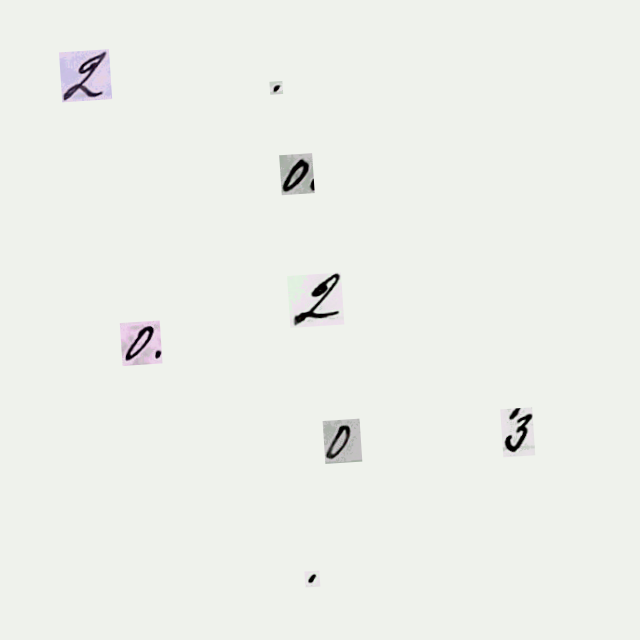 2
.
0.
2
0.
0
3
.